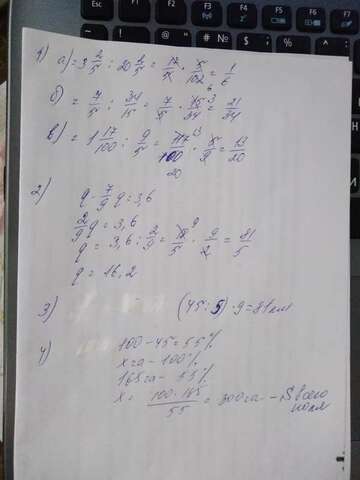 1) а) = 3 2/5 : 20 2/5 = 17/5 · 5/102 6 = 1/6
б) = 7/5 : 34/15 = 7/5 · 15 3/34 = 21/34
в) = 1 17/100 : 9/5 = 117 13/100 20 · 5/9 = 13/20
2)
q - 7/9 q = 3,6
2/9 q = 3,6
q = 3,6 : 2/9 = 18 9/5 · 9/2 = 81/5
q = 16,2
3) (45 : 5) · 9 = 81 км
4) 100 - 45 = 55%
x га - 100%
165 га - 55%
x = 100 · 165/55 = 300 га - S всего
поля